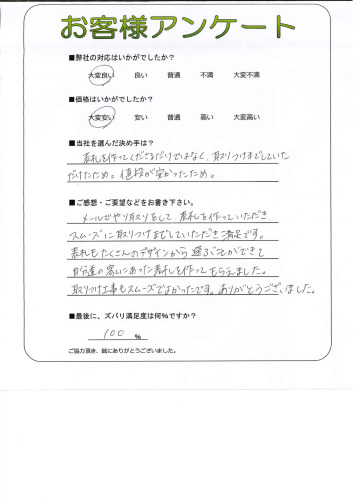 お客様アンケート
■弊社の対応はいかがでしたか？
大変良い 良い 普通 不満 大変不満
■価格はいかがでしたか？
大変安い 安い 普通 高い 大変高い
■当社を選んだ決め手は？
表札を作ってくださるだけではなく、取りつけまでしていた
だけたため。値段が安かったため。
■ご感想・ご要望などをお書き下さい。
メールでやり取りをして、表札を作っていただき
スムーズに取りつけまでしていただき満足です。
表札もたくさんのデザインから選ぶことができて
自分達の家にあった表札を作ってもらえました。
取りつけ工事もスムーズでよかったです。ありがとうございました。
■最後に、ズバリ満足度は何%ですか？
100 %
ご協力頂き、誠にありがとうございました。